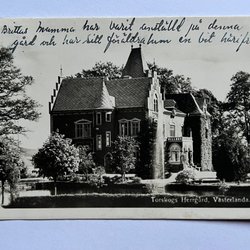 Brittas Mumma har varit anställd på denna
gård och har sitt föräldrahem en bit härifr
Torskogs Herrgård, Västerlanda